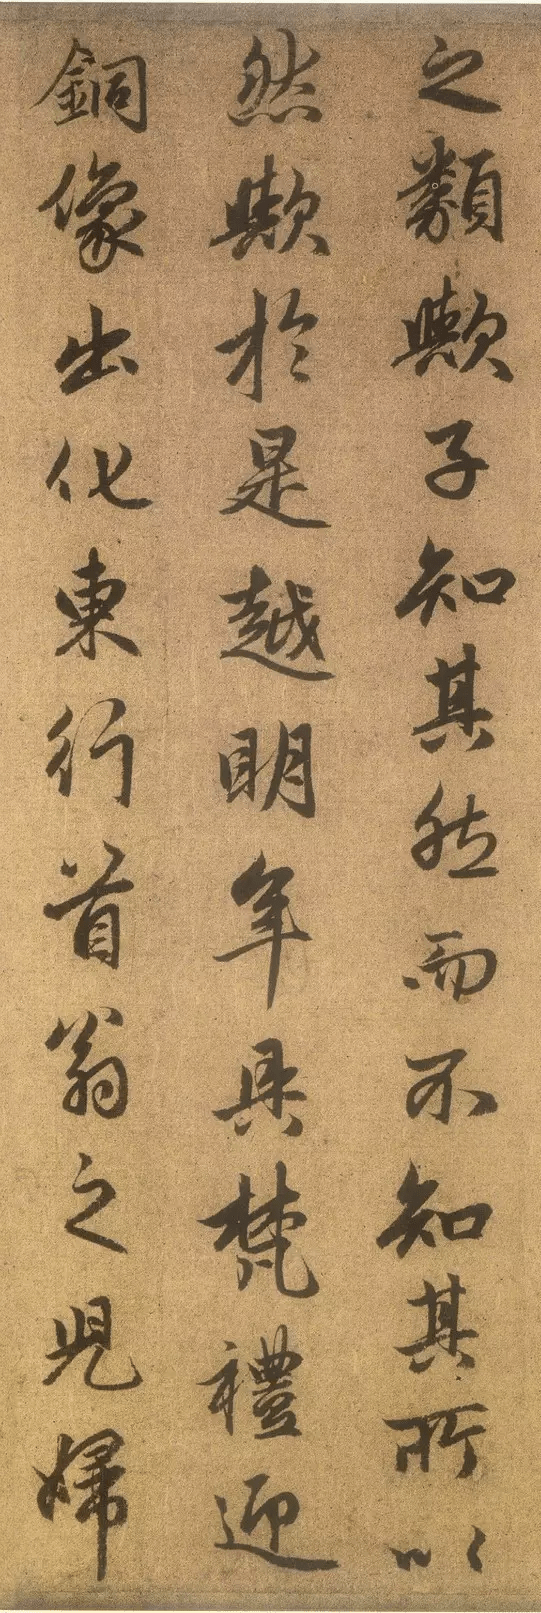 之類歟子知其然而不知其所以
然歟於是越明年具梵禮迎
銅像出化東行首翁之兒婦